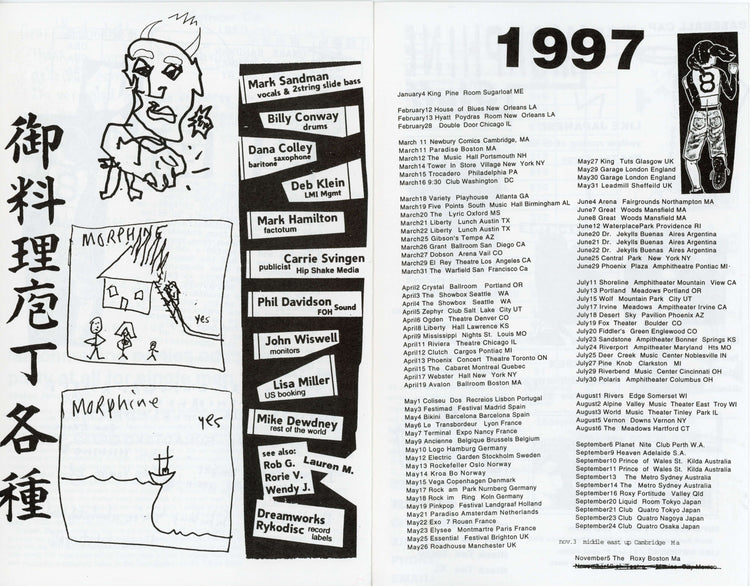 御料理庖丁各種
MORPHINE
yes
Morphine
yes
Mark Sandman
vocals & 2string slide bass
Billy Conway
drums
Dana Colley
saxophone
baritone
Deb Klein
LMI Mgmt
Mark Hamilton
factotum
Carrie Svingen
publicist Hip Shake Media
Phil Davidson
FOH Sound
John Wiswell
monitors
Lisa Miller
US booking
Mike Dewdney
rest of the world
see also:
Rob G. Lauren M.
Rorie V.
Wendy J.
Dreamworks
Rykodisc record
labels
1997
8
January4 King Pine Room Sugarloaf ME
February12 House of Blues New Orleans LA
February13 Hyatt Poydras Room New Orleans LA
February28 Double Door Chicago IL
March 11 Newbury Comics Cambridge, MA
March11 Paradise Boston MA
March12 The Music Hall Portsmouth NH
March14 Tower In Store Village New York NY
March15 Trocadero Philadelphia PA
March16 9:30 Club Washington DC
March18 Variety Playhouse Atlanta GA
March19 Five Points South Music Hall Birmingham AL
March20 The Lyric Oxford MS
March21 Liberty Lunch Austin TX
March22 Liberty Lunch Austin TX
March25 Gibson's Tempe AZ
March26 Grant Ballroom San Diego CA
March27 Dobson Arena Vail CO
March29 El Rey Theatre Los Angeles CA
March31 The Warfield San Francisco Ca
April2 Crystal Ballroom Portland OR
April3 The Showbox Seattle WA
April4 The Showbox Seattle WA
April5 Zephyr Club Salt Lake City UT
April6 Ogden Theatre Denver CO
April8 Liberty Hall Lawrence KS
April9 Mississippi Nights St. Louis MO
April11 Riviera Theatre Chicago IL
April12 Clutch Cargos Pontiac MI
April13 Phoenix Concert Theatre Toronto ON
April15 The Cabaret Montreal Quebec
April17 Webster Hall New York NY
April19 Avalon Ballroom Boston MA
May1 Coliseu Dos Recreios Lisbon Portugal
May3 Festimad Festival Madrid Spain
May4 Bikini Barcelona Barcelona Spain
May6 Le Transbordeur Lyon France
May7 Terminal Expo Nancy France
May9 Ancienne Belgique Brussels Belgium
May10 Logo Hamburg Germany
May12 Electric Garden Stockholm Sweden
May13 Rockefeller Oslo Norway
May14 Kroa Bo Norway
May15 Vega Copenhagen Denmark
May17 Rock am Park Nurnberg Germany
May18 Rock im Ring Koln Germany
May19 Pinkpop Festival Landgraaf Holland
May21 Paradiso Amsterdam Netherlands
May22 Exo 7 Rouen France
May23 Elysee Montmartre Paris France
May25 Essential Festival Brighton UK
May26 Roadhouse Manchester UK
May27 King Tuts Glasgow UK
May29 Garage London England
May30 Garage London England
May31 Leadmill Sheffeild UK
June4 Arena Fairgrounds Northampton MA
June7 Great Woods Mansfield MA
June8 Great Woods Mansfield MA
June12 WaterplacePark Providence RI
June20 Dr. Jekylls Buenas Aires Argentina
June21 Dr. Jekylls Buenas Aires Argentina
June22 Dr. Jekylls Buenas Aires Argentina
June25 Central Park New York NY
June29 Phoenix Plaza Amphitheatre Pontiac MI
July11 Shoreline Amphitheater Mountain View CA
July13 Portland Meadows Portland OR
July15 Wolf Mountain Park City UT
July17 Irvine Meadows Amphitheater Irvine CA
July18 Desert Sky Pavilion Phoenix AZ
July19 Fox Theater Boulder CO
July20 Fiddler's Green Englewood CO
July23 Sandstone Amphitheater Bonner Springs KS
July24 Riverport Amphitheater Maryland Hts MO
July25 Deer Creek Music Center Noblesville IN
July27 Pine Knob Clarkston MI
July29 Riverbend Music Center Cincinnati OH
July30 Polaris Amphitheater Columbus OH
August1 Rivers Edge Somerset WI
August2 Alpine Valley Music Theater East Troy WI
August3 World Music Theater Tinley Park IL
August5 Vernon Downs Vernon NY
August6 The Meadows Hartford CT
September6 Planet Nite Club Perth W.A.
September9 Heaven Adelaide S.A.
September10 Prince of Wales St. Kilda Australia
September11 Prince of Wales St. Kilda Australia
September13 The Metro Sydney Australia
September14 The Metro Sydney Australia
September16 Roxy Fortitude Valley Qld
September20 Liquid Room Tokyo Japan
September21 Club Quatro Tokyo Japan
September23 Club Quatro Nagoya Japan
September24 Club Quatro Osaka Japan
nov.3 middle east up Cambridge Ma
November5 The Roxy Boston Ma